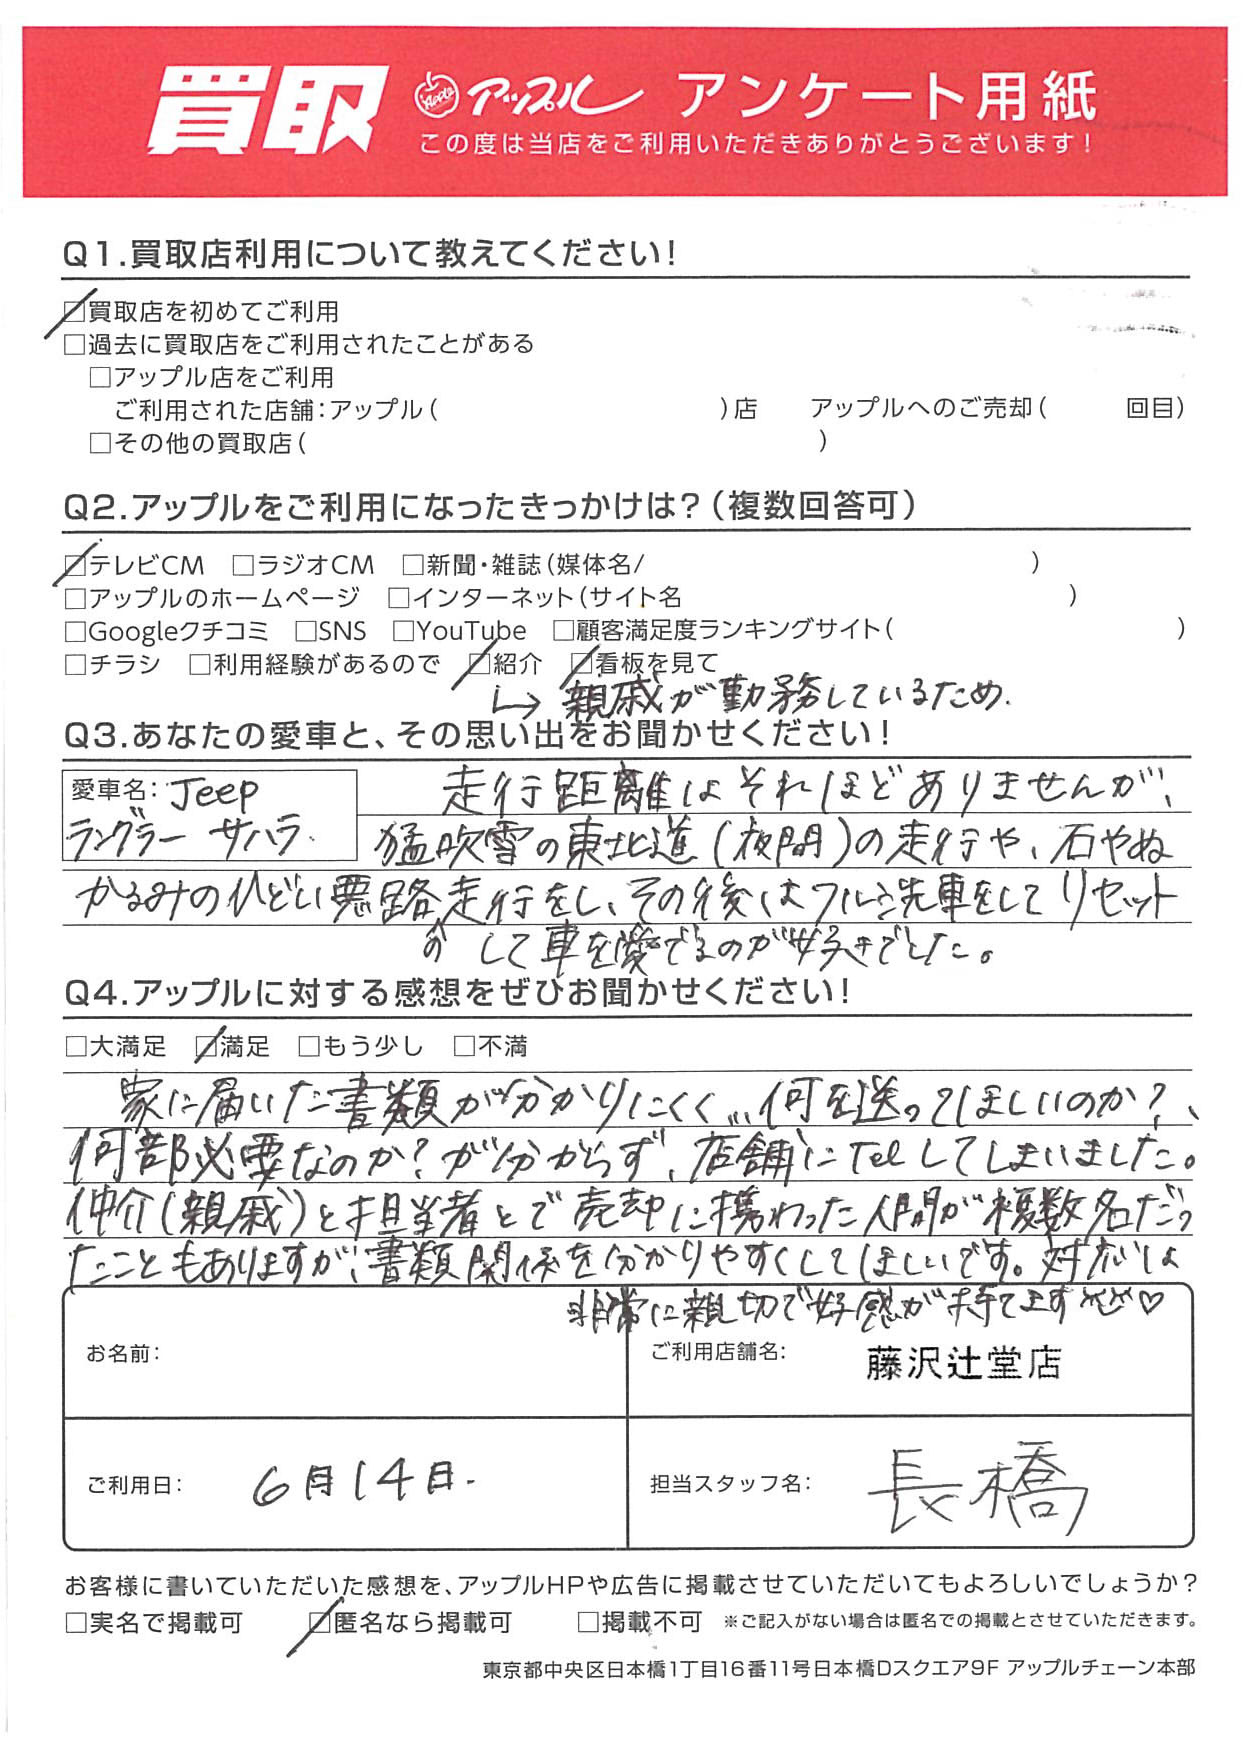 買取 Apple アップル アンケート用紙
この度は当店をご利用いただきありがとうございます!
Q1.買取店利用について教えてください!
☑買取店を初めてご利用
□過去に買取店をご利用されたことがある
□アップル店をご利用
ご利用された店舗:アップル( )店 アップルへのご売却( 回目)
□その他の買取店( )
Q2.アップルをご利用になったきっかけは?(複数回答可)
☑テレビCM □ラジオCM □新聞・雑誌(媒体名/ )
□アップルのホームページ □インターネット(サイト名 )
□Googleクチコミ □SNS □YouTube □顧客満足度ランキングサイト( )
□チラシ □利用経験があるので ☑紹介 ☑看板を見て
↳ 親戚が勤務しているため.
Q3.あなたの愛車と、その思い出をお聞かせください!
愛車名: Jeep 走行距離はそれほどありませんが、
ラングラー サハラ. 猛吹雪の東北道(夜間)の走行や、石やぬ
かるみのひどい悪路走行をし、その後はフル洗車をしてリセット
して車を愛でるのが好きでした。
Q4.アップルに対する感想をぜひお聞かせください!
□大満足 ☑満足 □もう少し □不満
家に届いた書類が分かりにくく...何を送ってほしいのか?、
何部必要なのか?が分からず、店舗にTelしてしまいました。
仲介(親戚)と担当者とで売却に携わった人間が複数名だっ
たこともありますが、書類関係を分かりやすくしてほしいです。対応は
非常に親切で好感が持てます♡
お名前: ご利用店舗名: 藤沢辻堂店
ご利用日: 6月14日. 担当スタッフ名: 長橋
お客様に書いていただいた感想を、アップルHPや広告に掲載させていただいてもよろしいでしょうか?
□実名で掲載可 ☑匿名なら掲載可 □掲載不可 ※ご記入がない場合は匿名での掲載とさせていただきます。
東京都中央区日本橋1丁目16番11号日本橋Dスクエア9F アップルチェーン本部